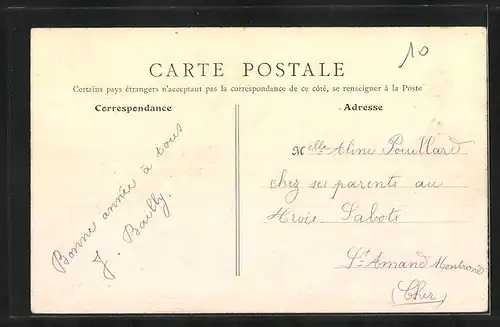 10
CARTE POSTALE
Certains pays étrangers n'acceptant pas la correspondance de ce côté, se renseigner à la Poste
Correspondance
Bonne année à tous
J. Bailly.
Adresse
Melle Aline Pouillard
chez ses parents au
trois Sabots
St Amand Montrond
(Cher)